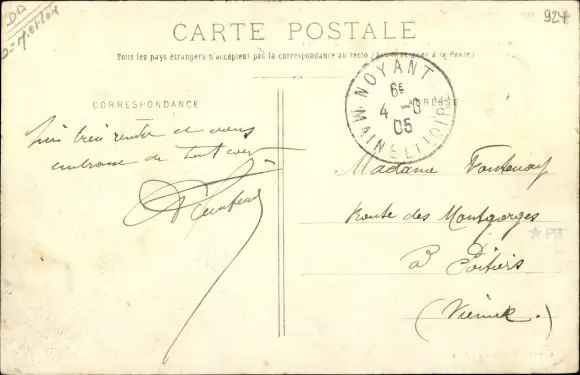 DD
924
CARTE POSTALE
Tous les pays étrangers n'acceptent pas la correspondance au recto (Se renseigner à la Poste)
CORRESPONDANCE
ADRESSE
NOYANT
6E
4 - 6
05
MAINE ET LOIRE
suis bien rentré et vous
embrasse de tout cœur
Madame Fontenay
Route des Montgorges
à Poitiers
(Vienne.)
PB